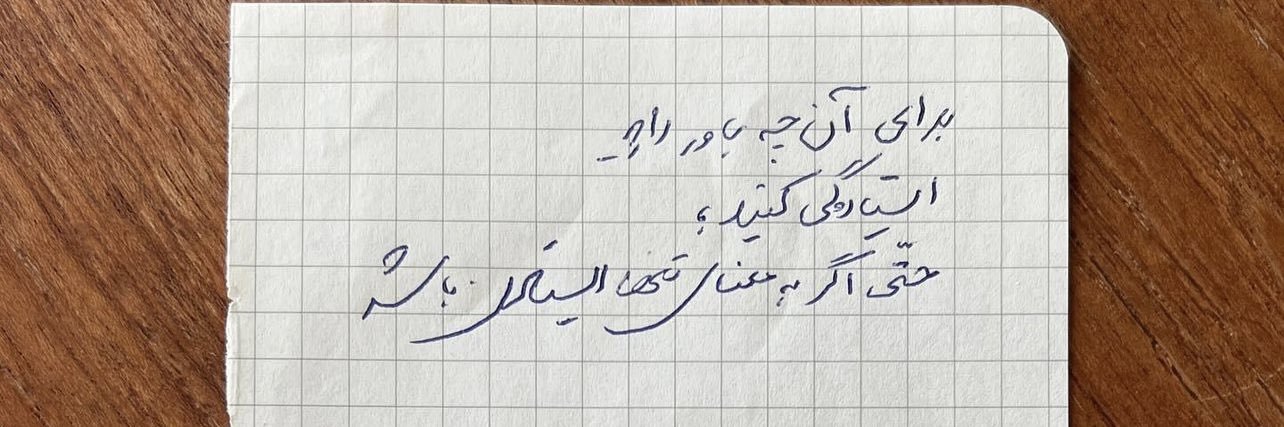 برای آن چه باور دارید
ایستادگی کنید؛
حتّی اگر به معنای تنها ایستادن باشد